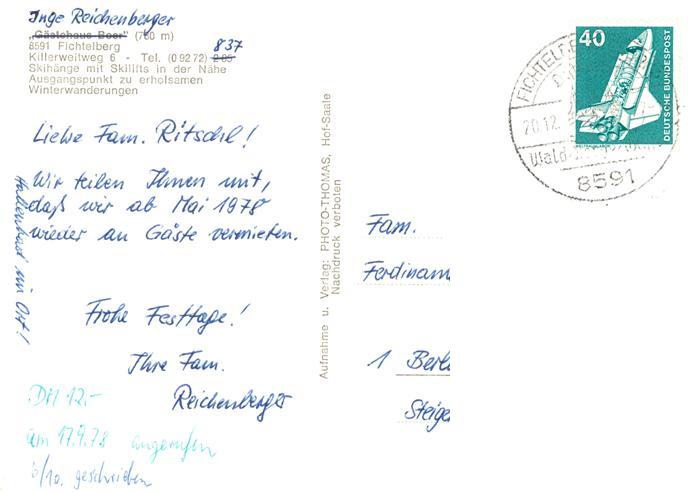 Inge Reichenberger
„Gästehaus Beer" (700 m)
8591 Fichtelberg 837
Killerweitweg 6 - Tel. (0 92 72) 2 05
Skihänge mit Skilifts in der Nähe
Ausgangspunkt zu erholsamen
Winterwanderungen
Liebe Fam. Ritschl!
Wir teilen Ihnen mit,
daß wir ab Mai 1978
wieder an Gäste vermieten.
Hallenbad im Ort!
Frohe Festtage!
Ihre Fam.
Reichenberger
DM 12.-
am 17.9.78 angerufen
6/10. geschrieben
Aufnahme u. Verlag: PHOTO-THOMAS, Hof-Saale
Nachdruck verboten
40
DEUTSCHE BUNDESPOST
FICHTELBE
20.12.
Wald
8591
Fam.
Ferdinam
1 Berl
Steige